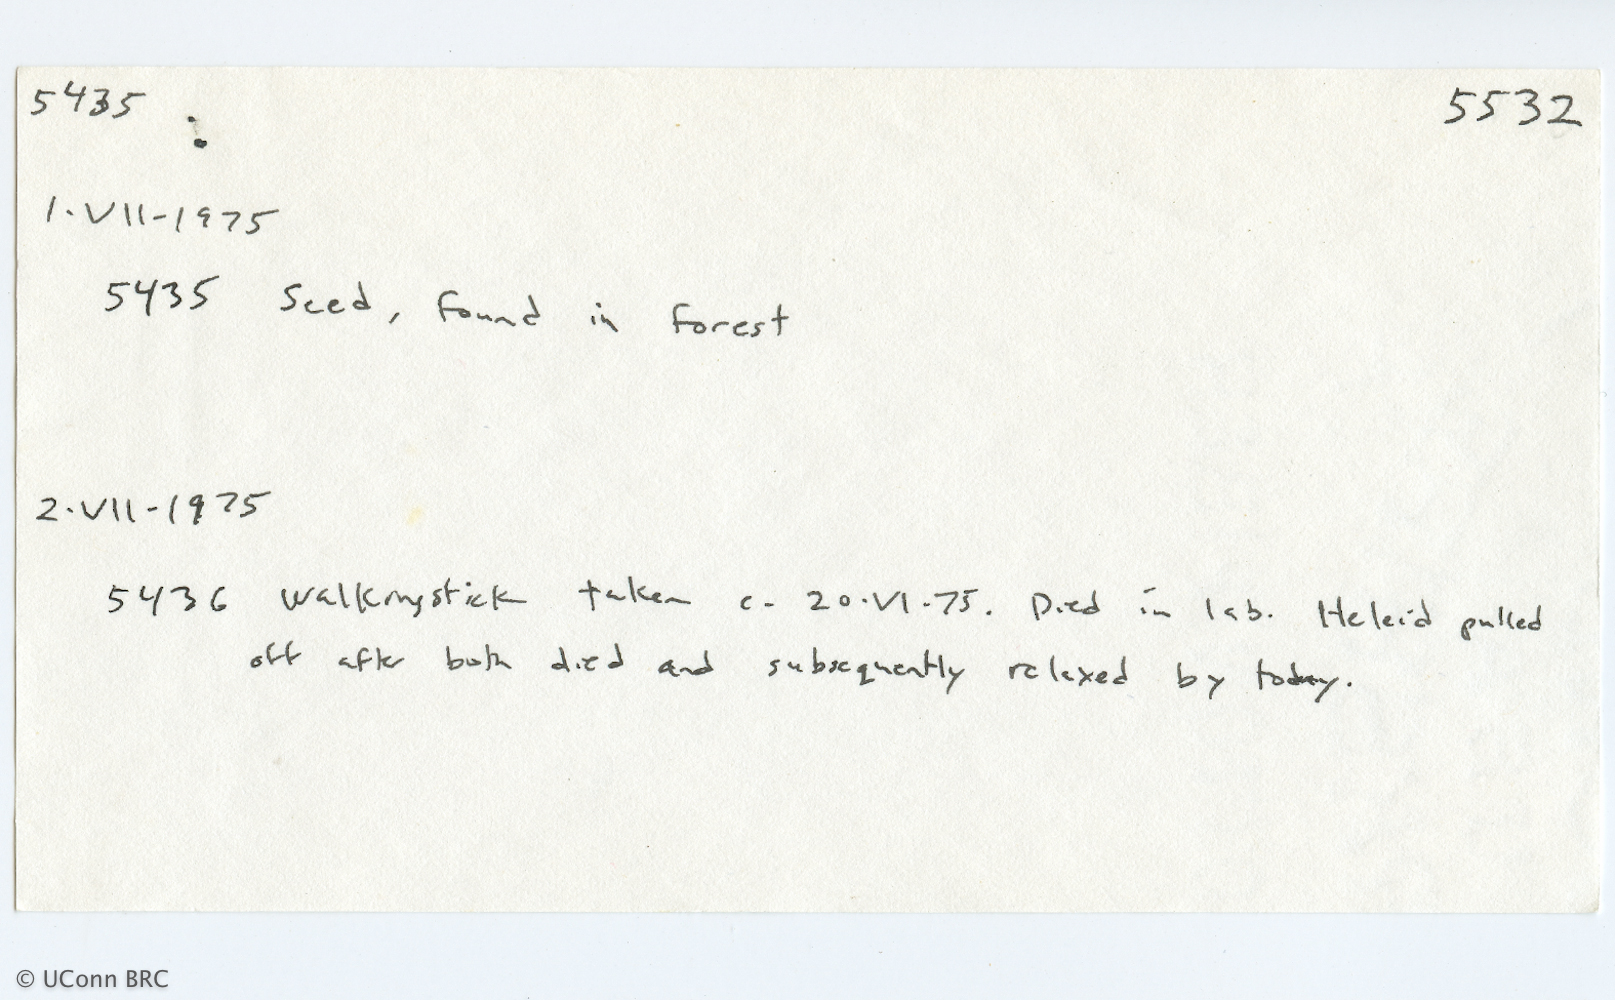 5435 5532
1·VII-1975
5435 Seed, found in forest
2·VII-1975
5436 walkingstick taken c. 20·VI·75. Died in lab. Heleid pulled
off after both died and subsequently relaxed by today.
© UConn BRC